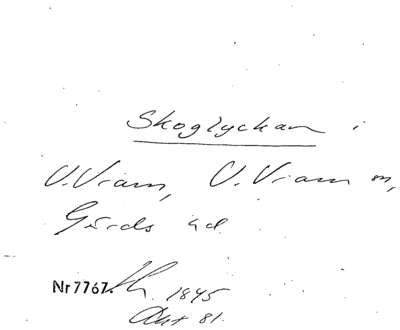 Skoglyckan i
V. Vram, V. Vram sn,
Gärds hd.
Nr 7767. 1845
Akt 81.